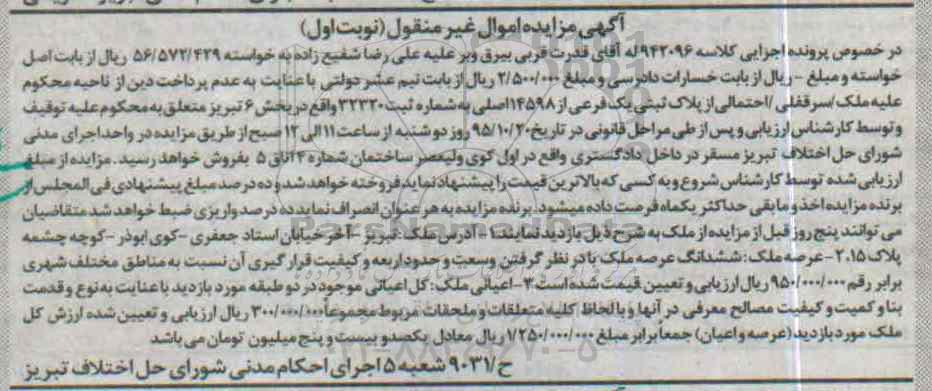 آگهی مزایده اموال غیر منقول (نوبت اول)
در خصوص پرونده اجرایی کلاسه ۹۴۲۰۹۶ له آقای قدرت قربی بیرق وبر علیه علی رضا شفیع زاده به خواسته ۵۶/۵۷۳/۴۲۹ ریال از بابت اصل
خواسته و مبلغ - ریال از بابت خسارات دادرسی و مبلغ ۲/۵۰۰/۰۰۰ ریال از بابت نیم عشر دولتی با عنایت به عدم پرداخت دین از ناحیه محکوم
علیه ملک/سرقفلی/احتمالی از پلاک ثبتی یک فرعی از ۱۴۵۹۸ اصلی به شماره ثبت ۳۲۳۲۰ واقع در بخش ۶ تبریز متعلق به محکوم علیه توقیف
و توسط کارشناس ارزیابی و پس از طی مراحل قانونی در تاریخ ۹۵/۱۰/۲۰ روز دوشنبه از ساعت ۱۱ الی ۱۲ صبح از طریق مزایده در واحد اجرای مدنی
شورای حل اختلاف تبریز مسقر در داخل دادگستری واقع در اول کوی ولیعصر ساختمان شماره ۴ اتاق ۵ بفروش خواهد رسید. مزایده از مبلغ
ارزیابی شده توسط کارشناس شروع و به کسی که بالاترین قیمت را پیشنهاد نماید فروخته خواهد شد و ده درصد مبلغ پیشنهادی فی المجلس از
برنده مزایده اخذ و مابقی حداکثر یکماه فرصت داده میشود. برنده مزایده به هر عنوان انصراف نماید ده درصد واریزی ضبط خواهد شد متقاضیان
می توانند پنج روز قبل از مزایده از ملک به شرح ذیل بازدید نمایند ۱- آدرس ملک: تبریز - آخر خیابان استاد جعفری - کوی ابوذر - کوچه چشمه
پلاک ۲.۱۵- عرصه ملک: ششدانگ عرصه ملک با در نظر گرفتن وسعت و حدود اربعه و کیفیت قرار گیری آن نسبت به مناطق مختلف شهری
برابر رقم ۹۵۰/۰۰۰/۰۰۰ ریال ارزیابی و تعیین قیمت شده است ۳- اعیانی ملک: کل اعیانی موجود در دو طبقه مورد بازدید با عنایت به نوع و قدمت
بنا و کمیت و کیفیت مصالح معرفی در آنها و با لحاظ کلیه متعلقات و ملحقات مربوط مجموعاً ۳۰۰/۰۰۰/۰۰۰ ریال ارزیابی و تعیین شده ارزش کل
ملک مورد بازدید (عرصه و اعیان) جمعا برابر مبلغ ۱/۲۵۰/۰۰۰/۰۰۰ ریال معادل یکصدو بیست و پنج میلیون تومان می باشد
ح/۹۰۳۱ شعبه ۵ اجرای احکام مدنی شورای حل اختلاف تبریز